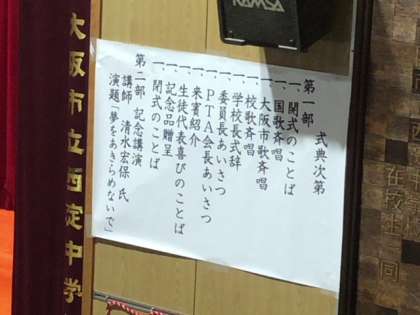 RAMSA
式典次第
第一部
一、開式のことば
一、国歌斉唱
一、大阪市歌斉唱
一、校歌斉唱
一、学校長式辞
一、委員長あいさつ
一、PTA会長あいさつ
一、来賓紹介
一、生徒代表喜びのことば
一、記念品贈呈
一、閉式のことば
第二部 記念講演
講師 清水宏保 氏
演題「夢をあきらめないで」
大阪市立西淀中学
在校生一同